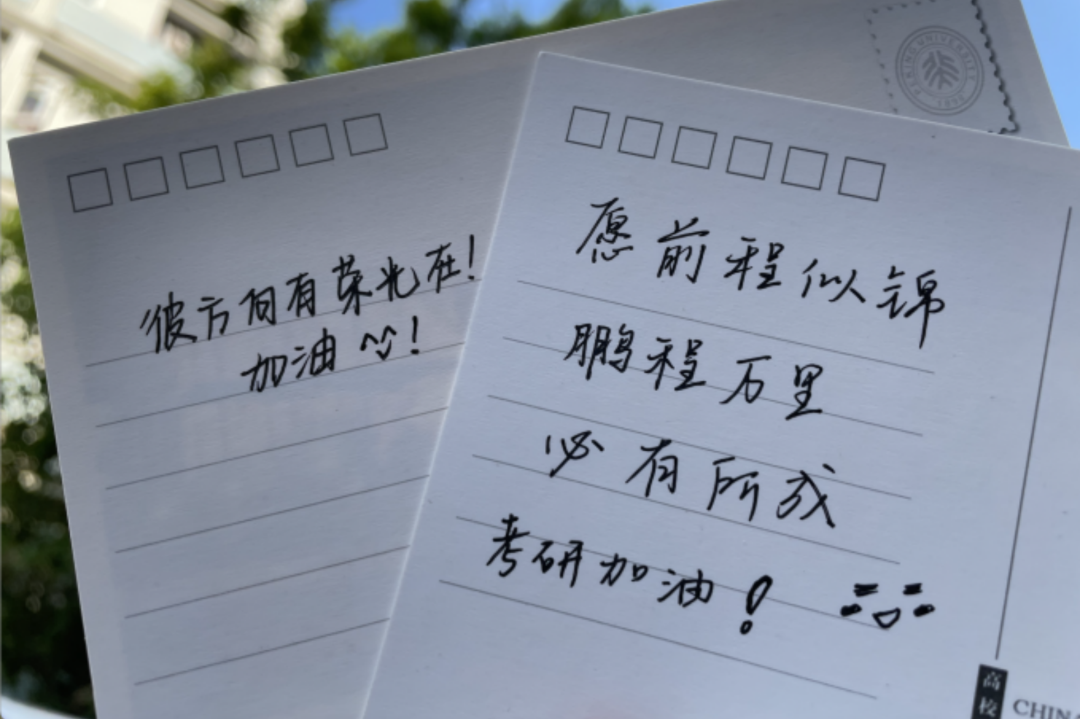 彼方尚有荣光在!
加油^^!
愿前程似锦
鹏程万里
必有所成
考研加油!
PEKING UNIVERSITY
1898
高校
CHINA